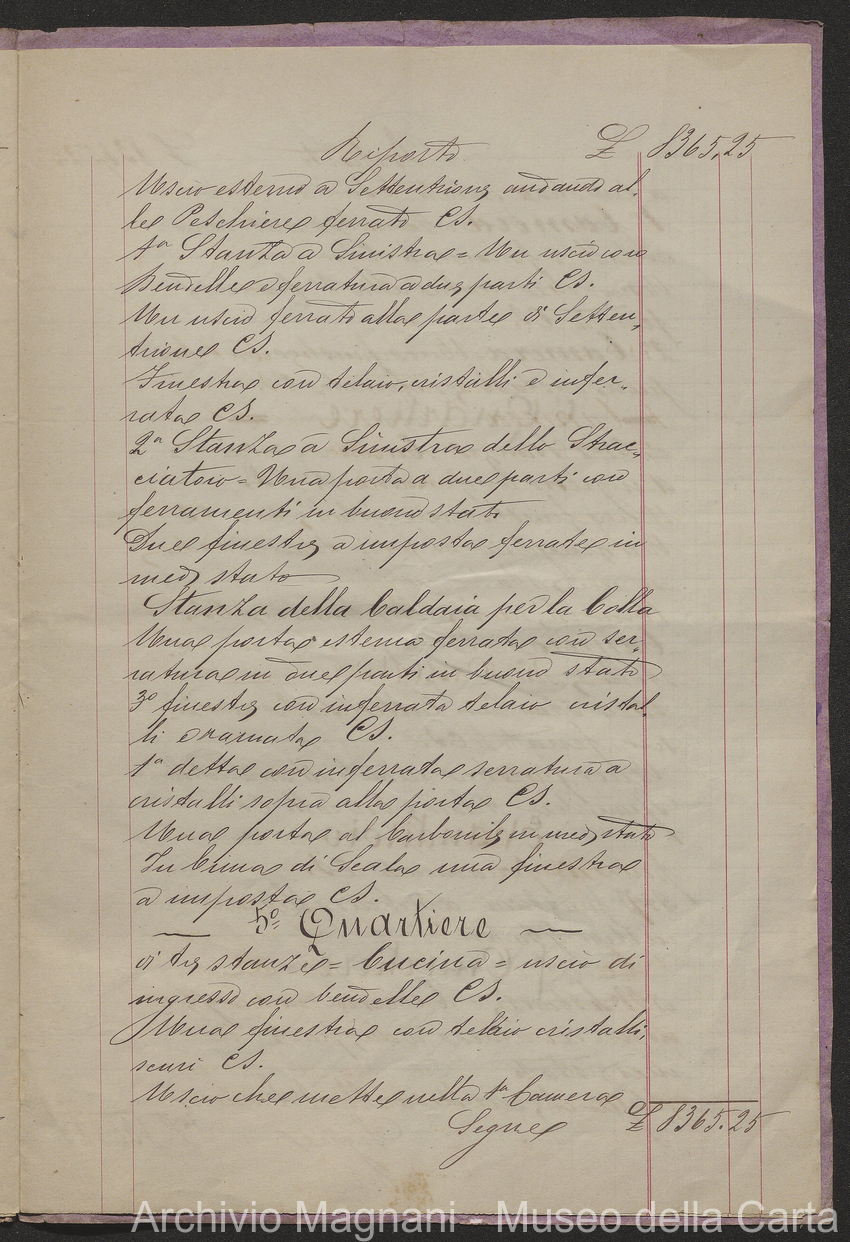 Riporto £ 8365,25
Uscio esterno a Settentrione andando al,,
le Peschiere ferrato CS.
1ª Stanza a Sinistra = Un uscio con
Bendelle e ferratura a due parti CS.
Un uscio ferrato alla parte di Setten,,
trione CS.
Finestra con telaio, cristalli e infer,,
rata CS.
2ª Stanza a Sinistra dello Strac,,
ciatoio = Una porta a due parti con
ferramenti in buono stato
Due finestre a imposta ferrate in
med,, stato
Stanza della Caldaia per la Colla
Una porta esterna ferrata con ser,,
ratura in due parti in buono stato
3º finestre con inferrata telaio cristal,,
li e ramata CS.
1ª detta con inferrata serratura a
cristalli sopra alla porta CS.
Una porta al Carbonile in med,, stato
In Cima di Scala una finestra
a imposta CS.
— 5º Quartiere —
di tre stanze = Cucina = uscio di
ingresso con bendelle CS.
Una finestra con telaio cristalli,
scuri CS.
Uscio che mette nella 1ª Camera
Segue £ 8365.25
Archivio Magnani - Museo della Carta